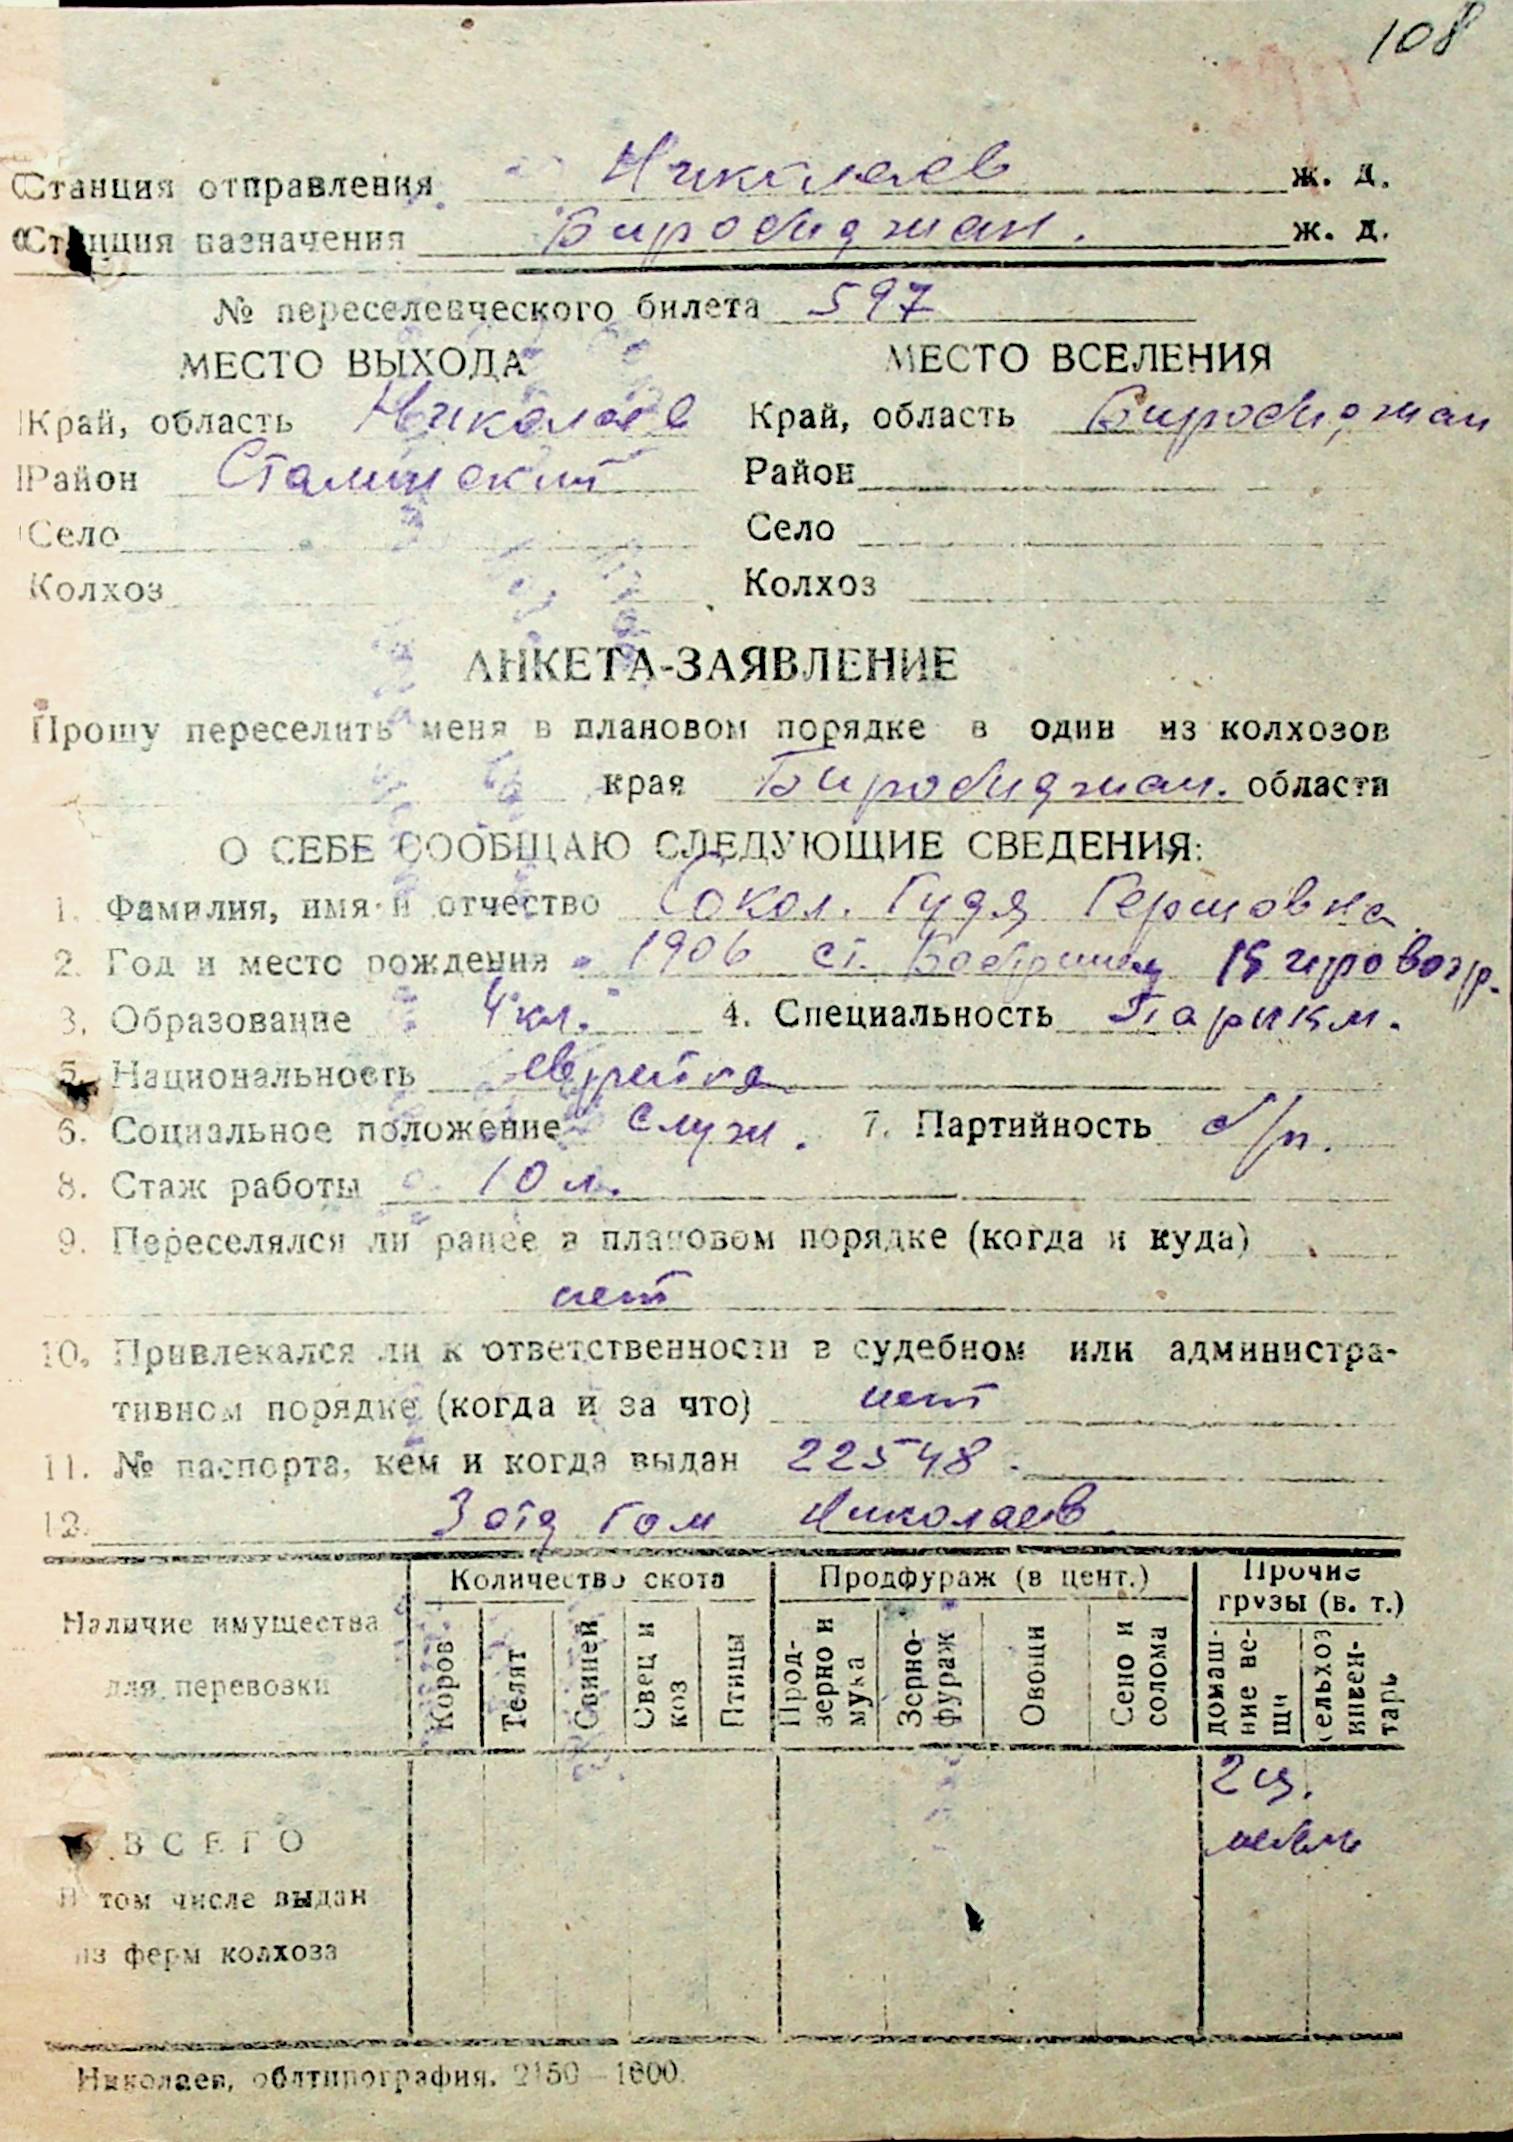 108
Станция отправления Николаев ж. д.
Станция назначения Биробиджан. ж. д.
№ переселенческого билета 597
МЕСТО ВЫХОДА МЕСТО ВСЕЛЕНИЯ
Край, область Николаев Край, область Биробиджан
Район Сталинский Район
Село Село
Колхоз Колхоз
АНКЕТА-ЗАЯВЛЕНИЕ
Прошу переселить меня в плановом порядке в один из колхозов
края Биробиджан. области
О СЕБЕ СООБЩАЮ СЛЕДУЮЩИЕ СВЕДЕНИЯ:
1. Фамилия, имя и отчество Сокол. Гудя Гершовна
2. Год и место рождения 1906 ст. Бобринец Кировогр.
3. Образование 4 кл. 4. Специальность Парикм.
5. Национальность еврейка
6. Социальное положение служ. 7. Партийность б/п.
8. Стаж работы 10 л.
9. Переселялся ли ранее в плановом порядке (когда и куда)
нет
10. Привлекался ли к ответственности в судебном или администра-
тивном порядке (когда и за что) нет
11. № паспорта, кем и когда выдан 22548.
12. 3 отд гом Николаев
Наличие имущества для перевозки
Количество скота
Продфураж (в цент.)
Прочие грузы (в. т.)
Коров
Телят
Свиней
Овец и коз
Птицы
Прод-зерно и мука
Зерно-фураж
Овощи
Сено и солома
домаш-ние ве-щи
сельхоз инвен-тарь
2 ц.
ВСЕГО мебель
В том числе выдан
из ферм колхоза
Николаев, облтипография. 2150—1600.